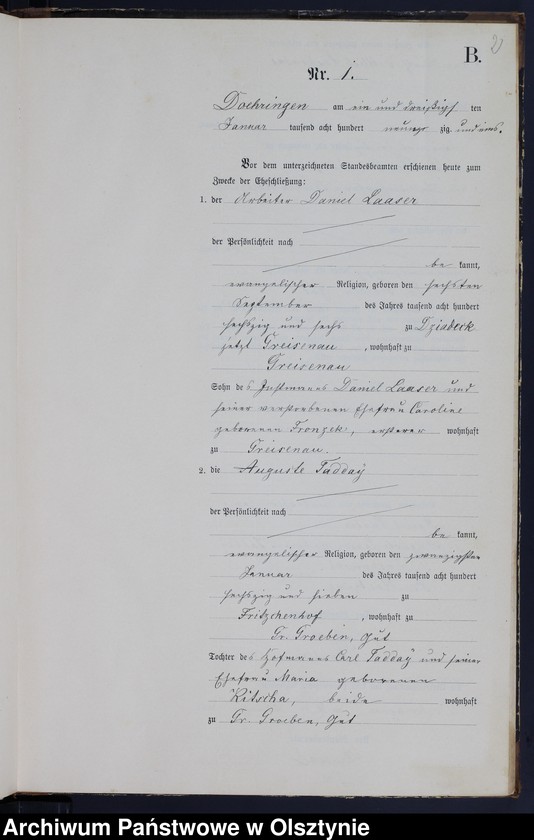 B.
Nr. 1.
Doehringen am ein und dreißigsten
Januar tausend acht hundert neunzig und eins.
Vor dem unterzeichneten Standesbeamten erschienen heute zum
Zwecke der Eheschließung:
1. der Arbeiter Daniel Laaser
der Persönlichkeit nach
be kannt,
evangelischer Religion, geboren den sechsten
September des Jahres tausend acht hundert
sechszig und sechs zu Dziadeck
jetzt Greisenau, wohnhaft zu
Greisenau
Sohn des Instmanns Daniel Laaser und
seiner verstorbenen Ehefrau Caroline
geborenen Fronzek, ersterer wohnhaft
zu Greisenau.
2. die Auguste Tadday
der Persönlichkeit nach
be kannt,
evangelischer Religion, geboren den zwanzigsten
Januar des Jahres tausend acht hundert
sechszig und sieben zu
Fritzchenhof, wohnhaft zu
Gr. Groeben, Gut
Tochter des Hofmanns Carl Tadday und seiner
Ehefrau Maria geborenen
Kitscha, beide wohnhaft
zu Gr. Groeben, Gut
Archiwum Państwowe w Olsztynie